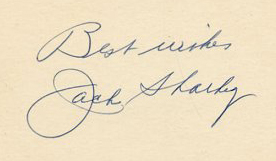 Best wishes
Jack Sharkey